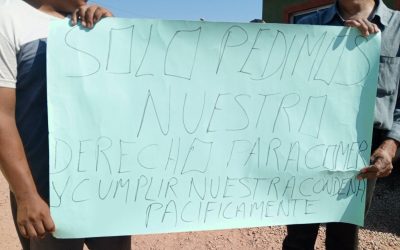 SOLO PEDIMOS
NUESTRO
DERECHO PARA COMER
Y CUMPLIR NUESTRA CONDENA
PACIFICAMENTE